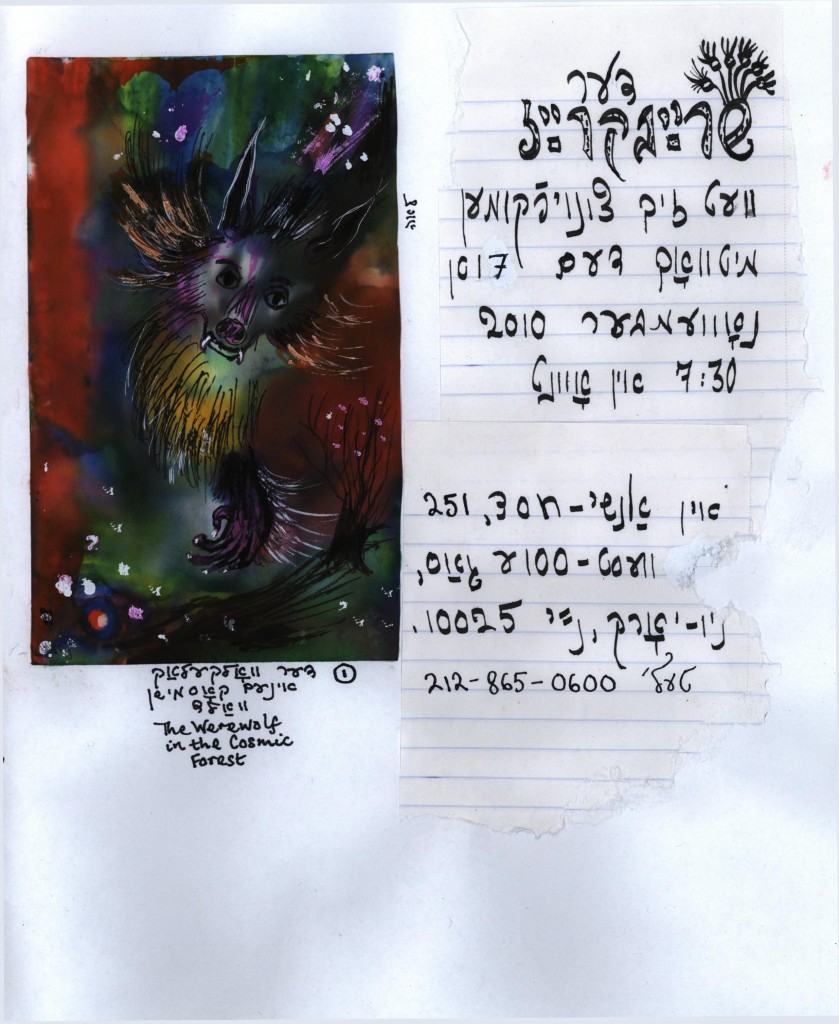 דער
שרײַבקרײַז
וועט זיך צונויפֿקומען
מיטוואָך דעם 17טן
נאָוועמבער 2010
7:30 אין אָוונט
אין אַנשי-חסד, 251
וועסט-100ע גאַס,
ניו-יאָרק, נ״י 10025.
טעל׳ 212-865-0600
① דער וואָלקעלאַק
אינעם קאָסמישן
וואַלד
The Werewolf
in the Cosmic
Forest